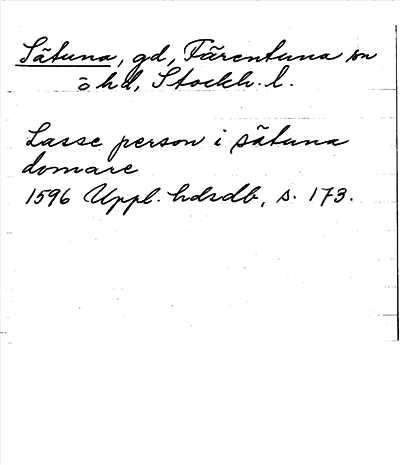 Sätuna, gd, Färentuna sn
ö hd, Stockh. l.
Lasse person i sätuna
domare
1596 Uppl. hdrdb, s. 173.